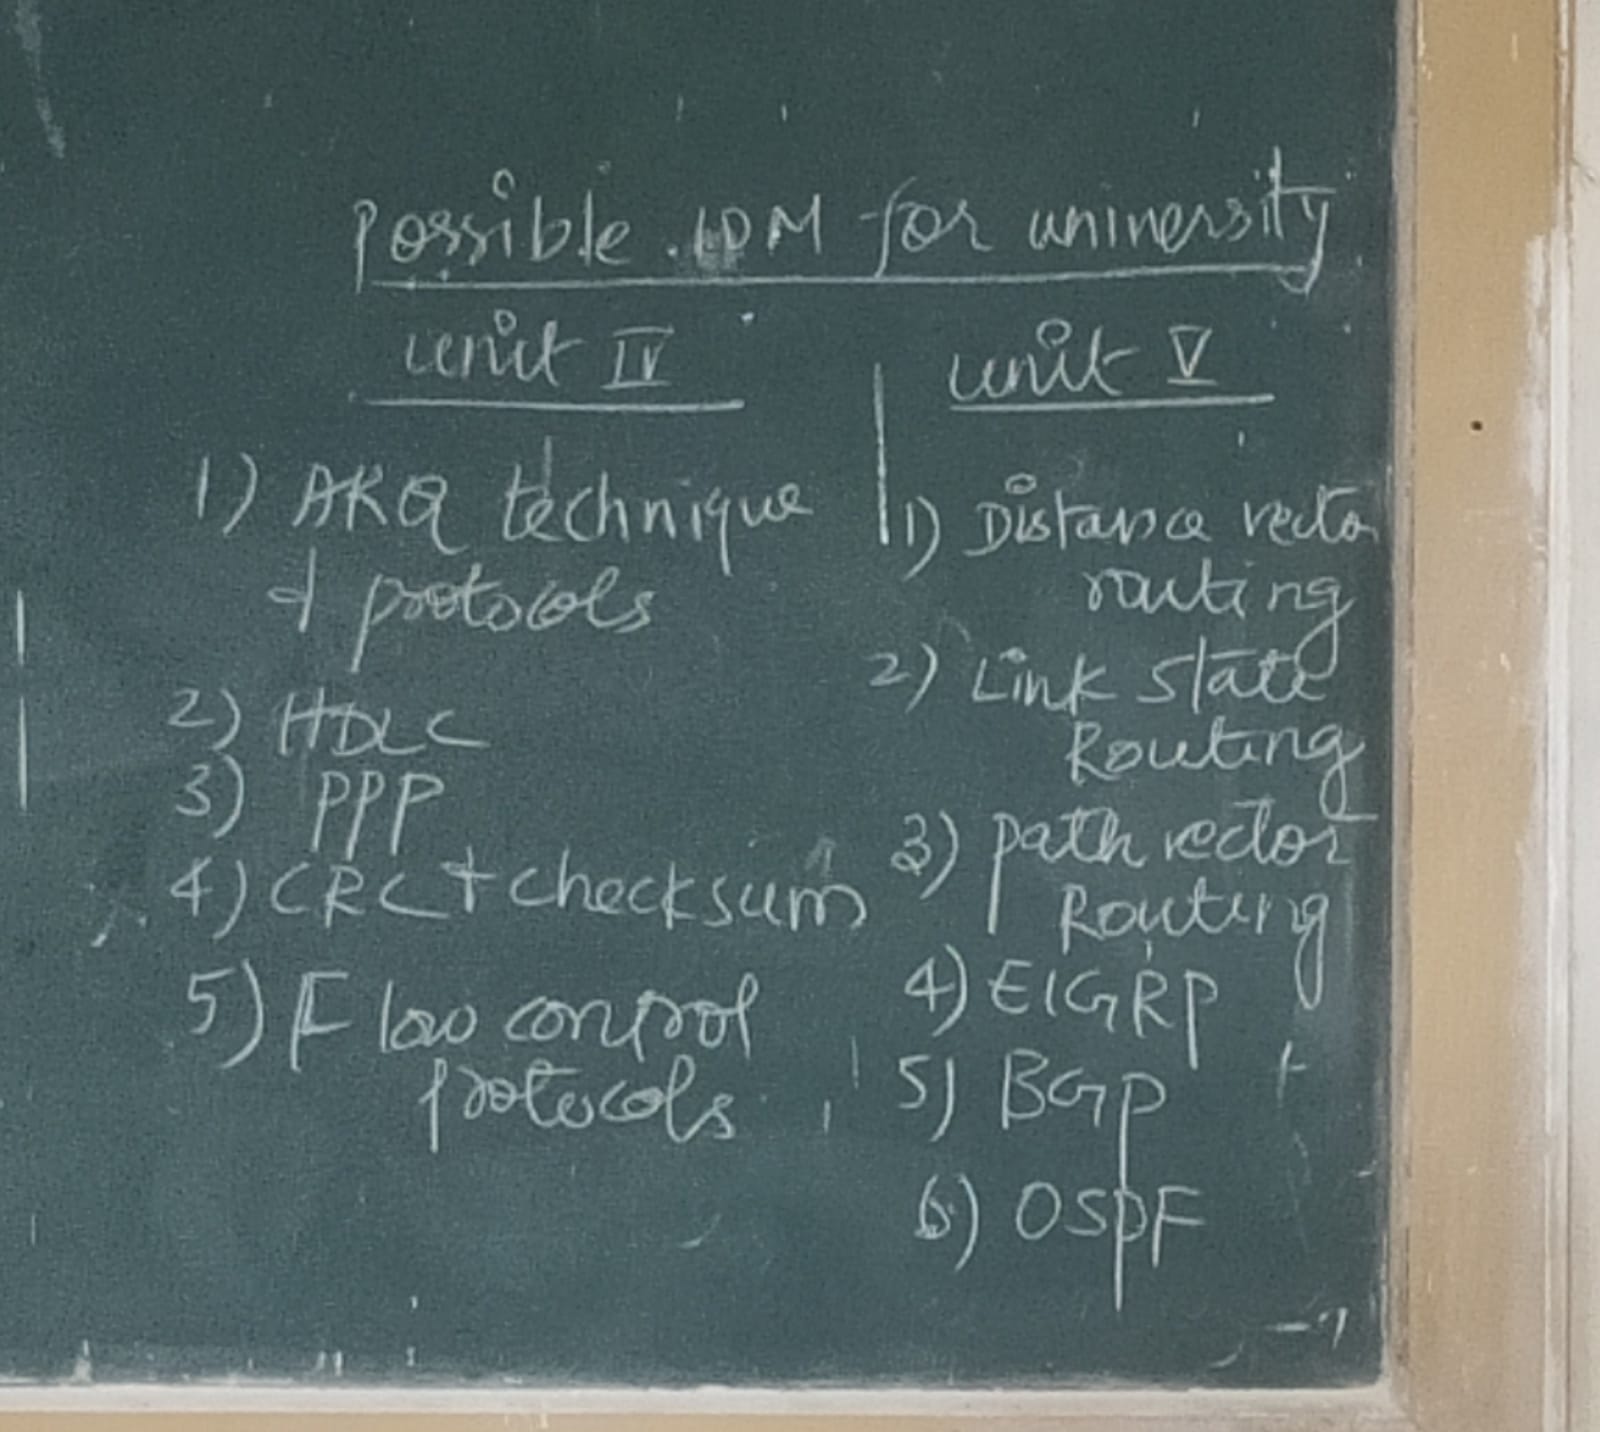 possible 10M for university
unit IV
1) ARQ technique
& protocols
2) HDLC
3) PPP
4) CRC + checksum
5) Flow control
protocols
unit V
1) Distance vector
routing
2) Link state
Routing
3) path vector
Routing
4) EIGRP
5) BGP
6) OSPF